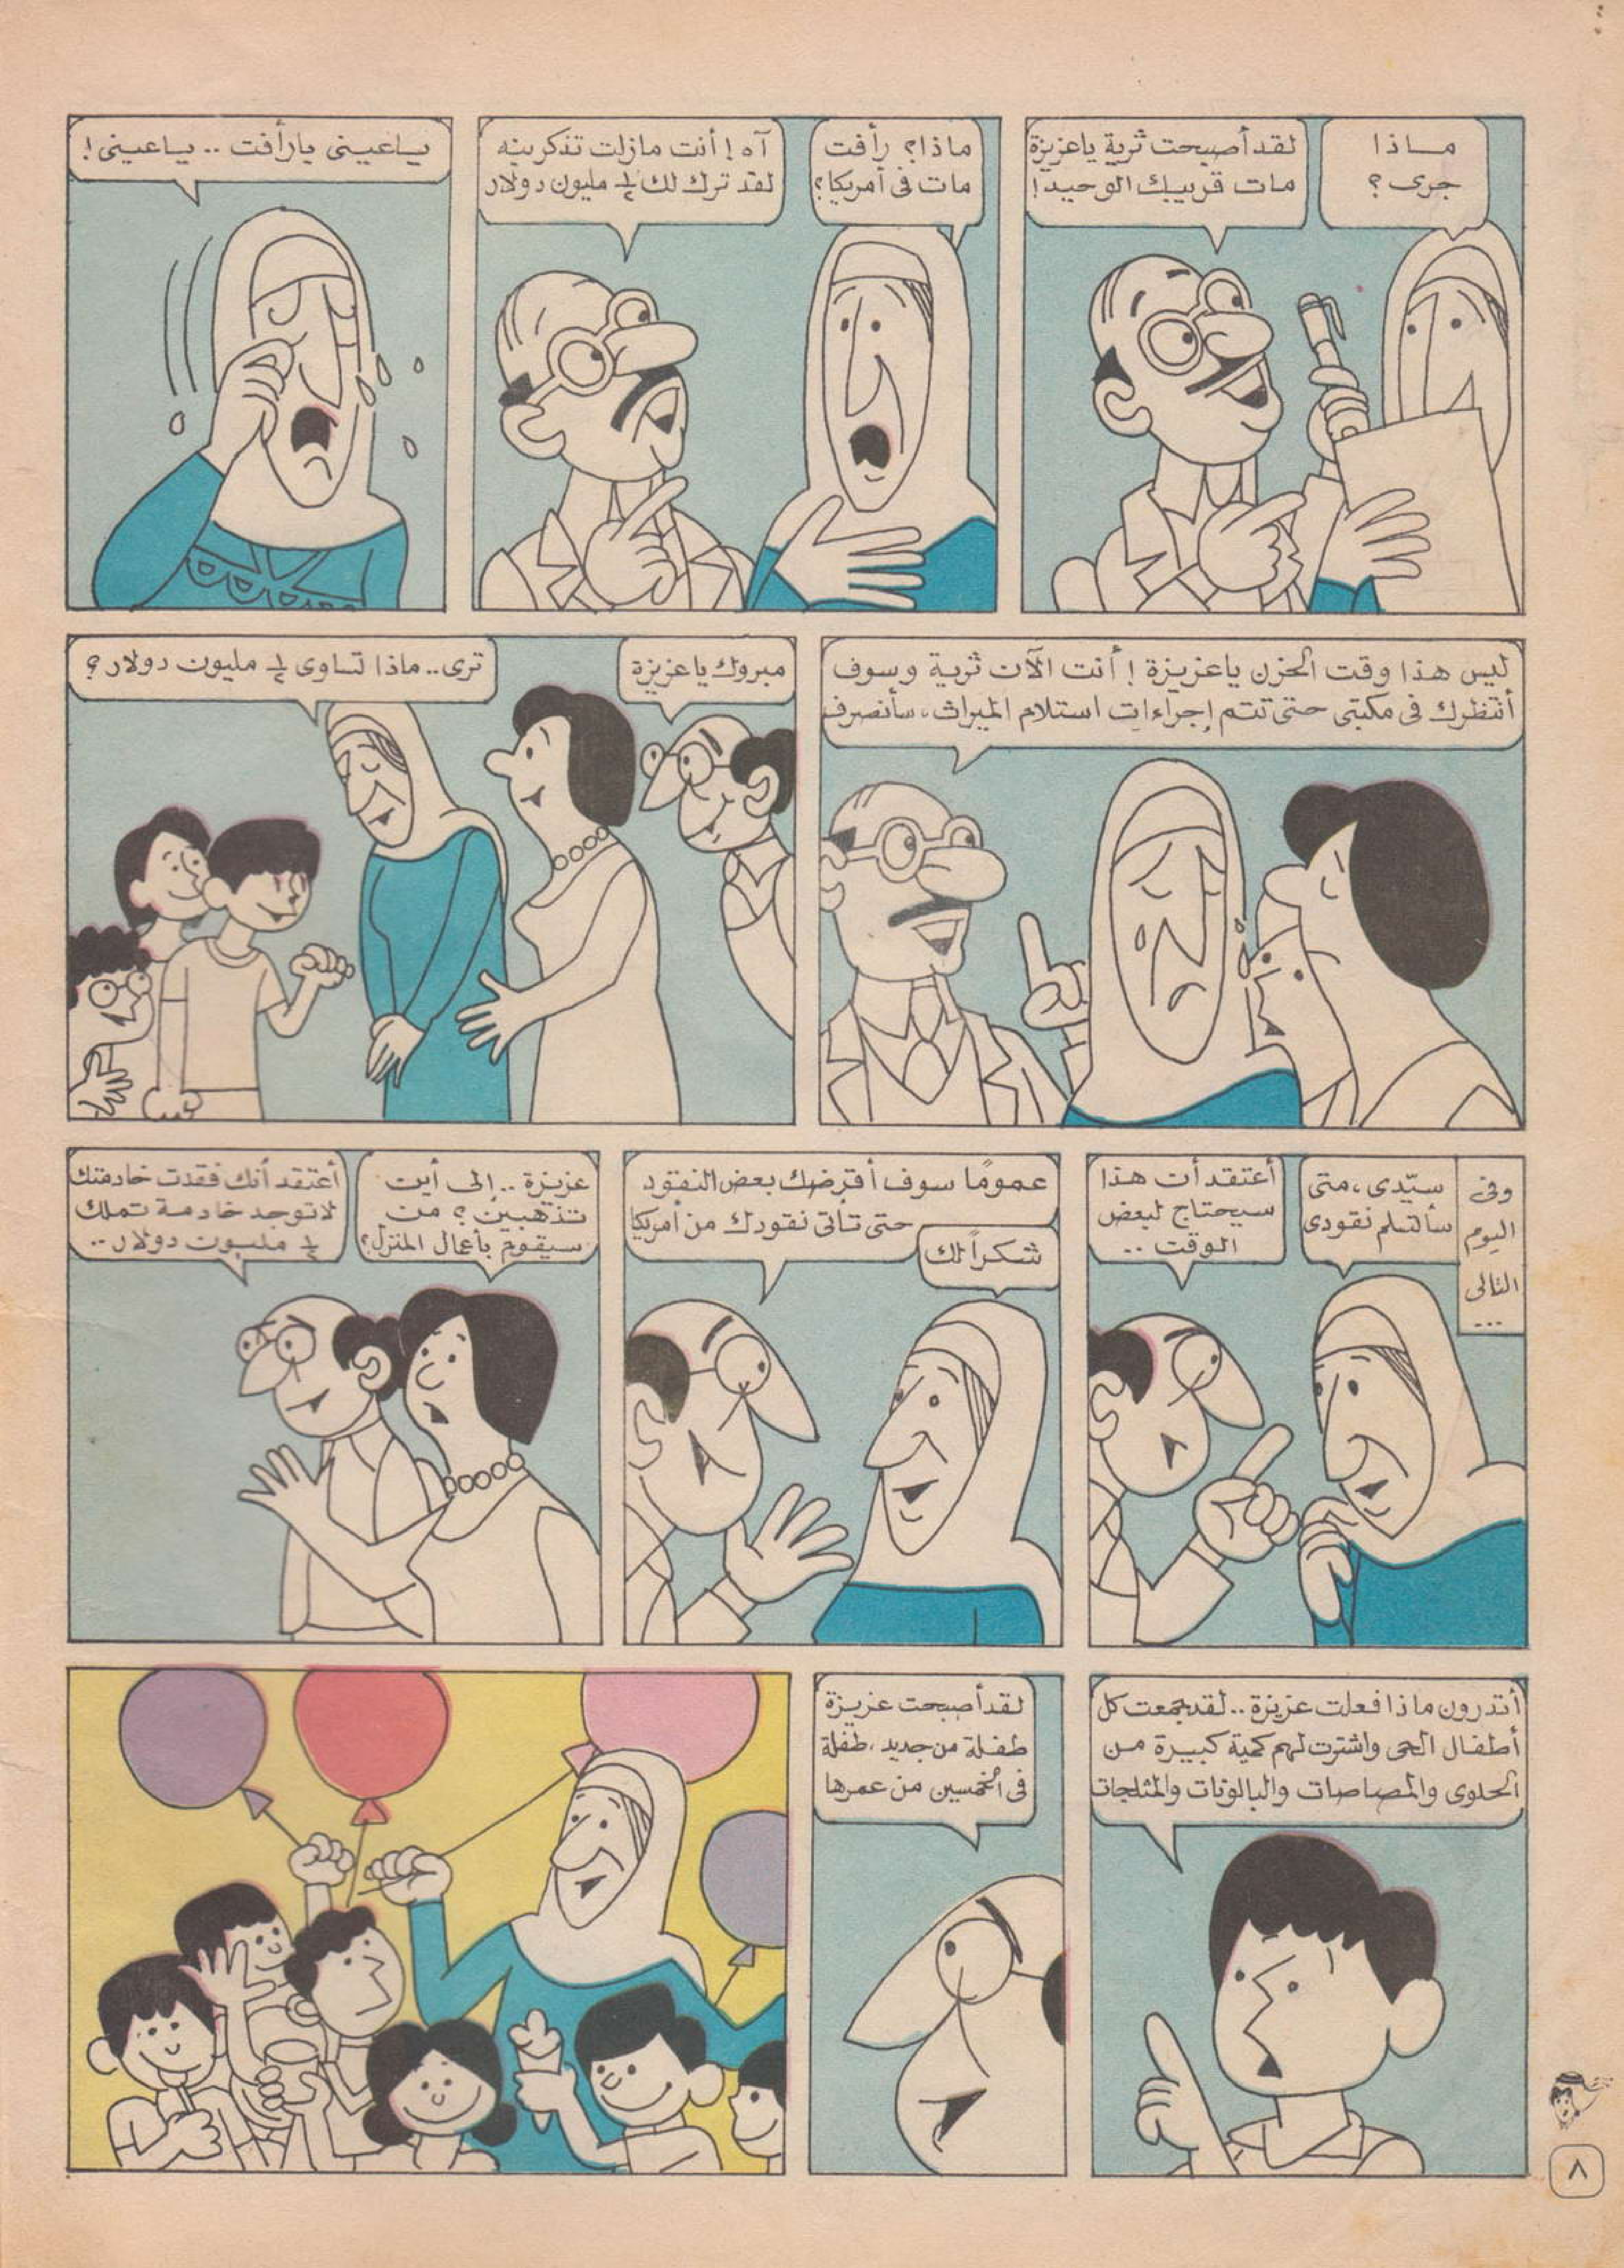 ماذا
جرى ؟
لقد أصبحت ثرية ياعزيزة
مات قريبك الوحيد !
ماذا؟ رأفت
مات فى أمريكا؟
آه ! أنت مازلت تذكرينه
لقد ترك لك ½ مليون دولار
ياعينى يارأفت .. ياعينى !
ليس هذا وقت الحزن ياعزيزة ! أنت الآن ثرية وسوف
أنتظرك فى مكتبى حتى تتم إجراءات استلام الميراث، سأنصرف
مبروك ياعزيزة
ترى.. ماذا تساوى ½ مليون دولار ؟
وفى
اليوم
التالى
...
سيّدى ، متى
سأتسلم نقودى
أعتقد أن هذا
سيحتاج لبعض
الوقت ..
عمومًا سوف أقرضك بعض النقود
حتى تأتى نقودك من أمريكا
شكراً لك
عزيزة .. إلى أين
تذهبين ؟ من
سيقوم بأعمال المنزل؟
أعتقد أنك فقدت خادمتك
لاتوجد خادمة تملك
½ مليون دولار ..
أتدرون ماذا فعلت عزيزة .. لقد جمعت كل
أطفال الحى واشترت لهم كمية كبيرة من
الحلوى والمصاصات والبالونات والمثلجات
لقد أصبحت عزيزة
طفلة من جديد ، طفلة
فى الخمسين من عمرها
٨